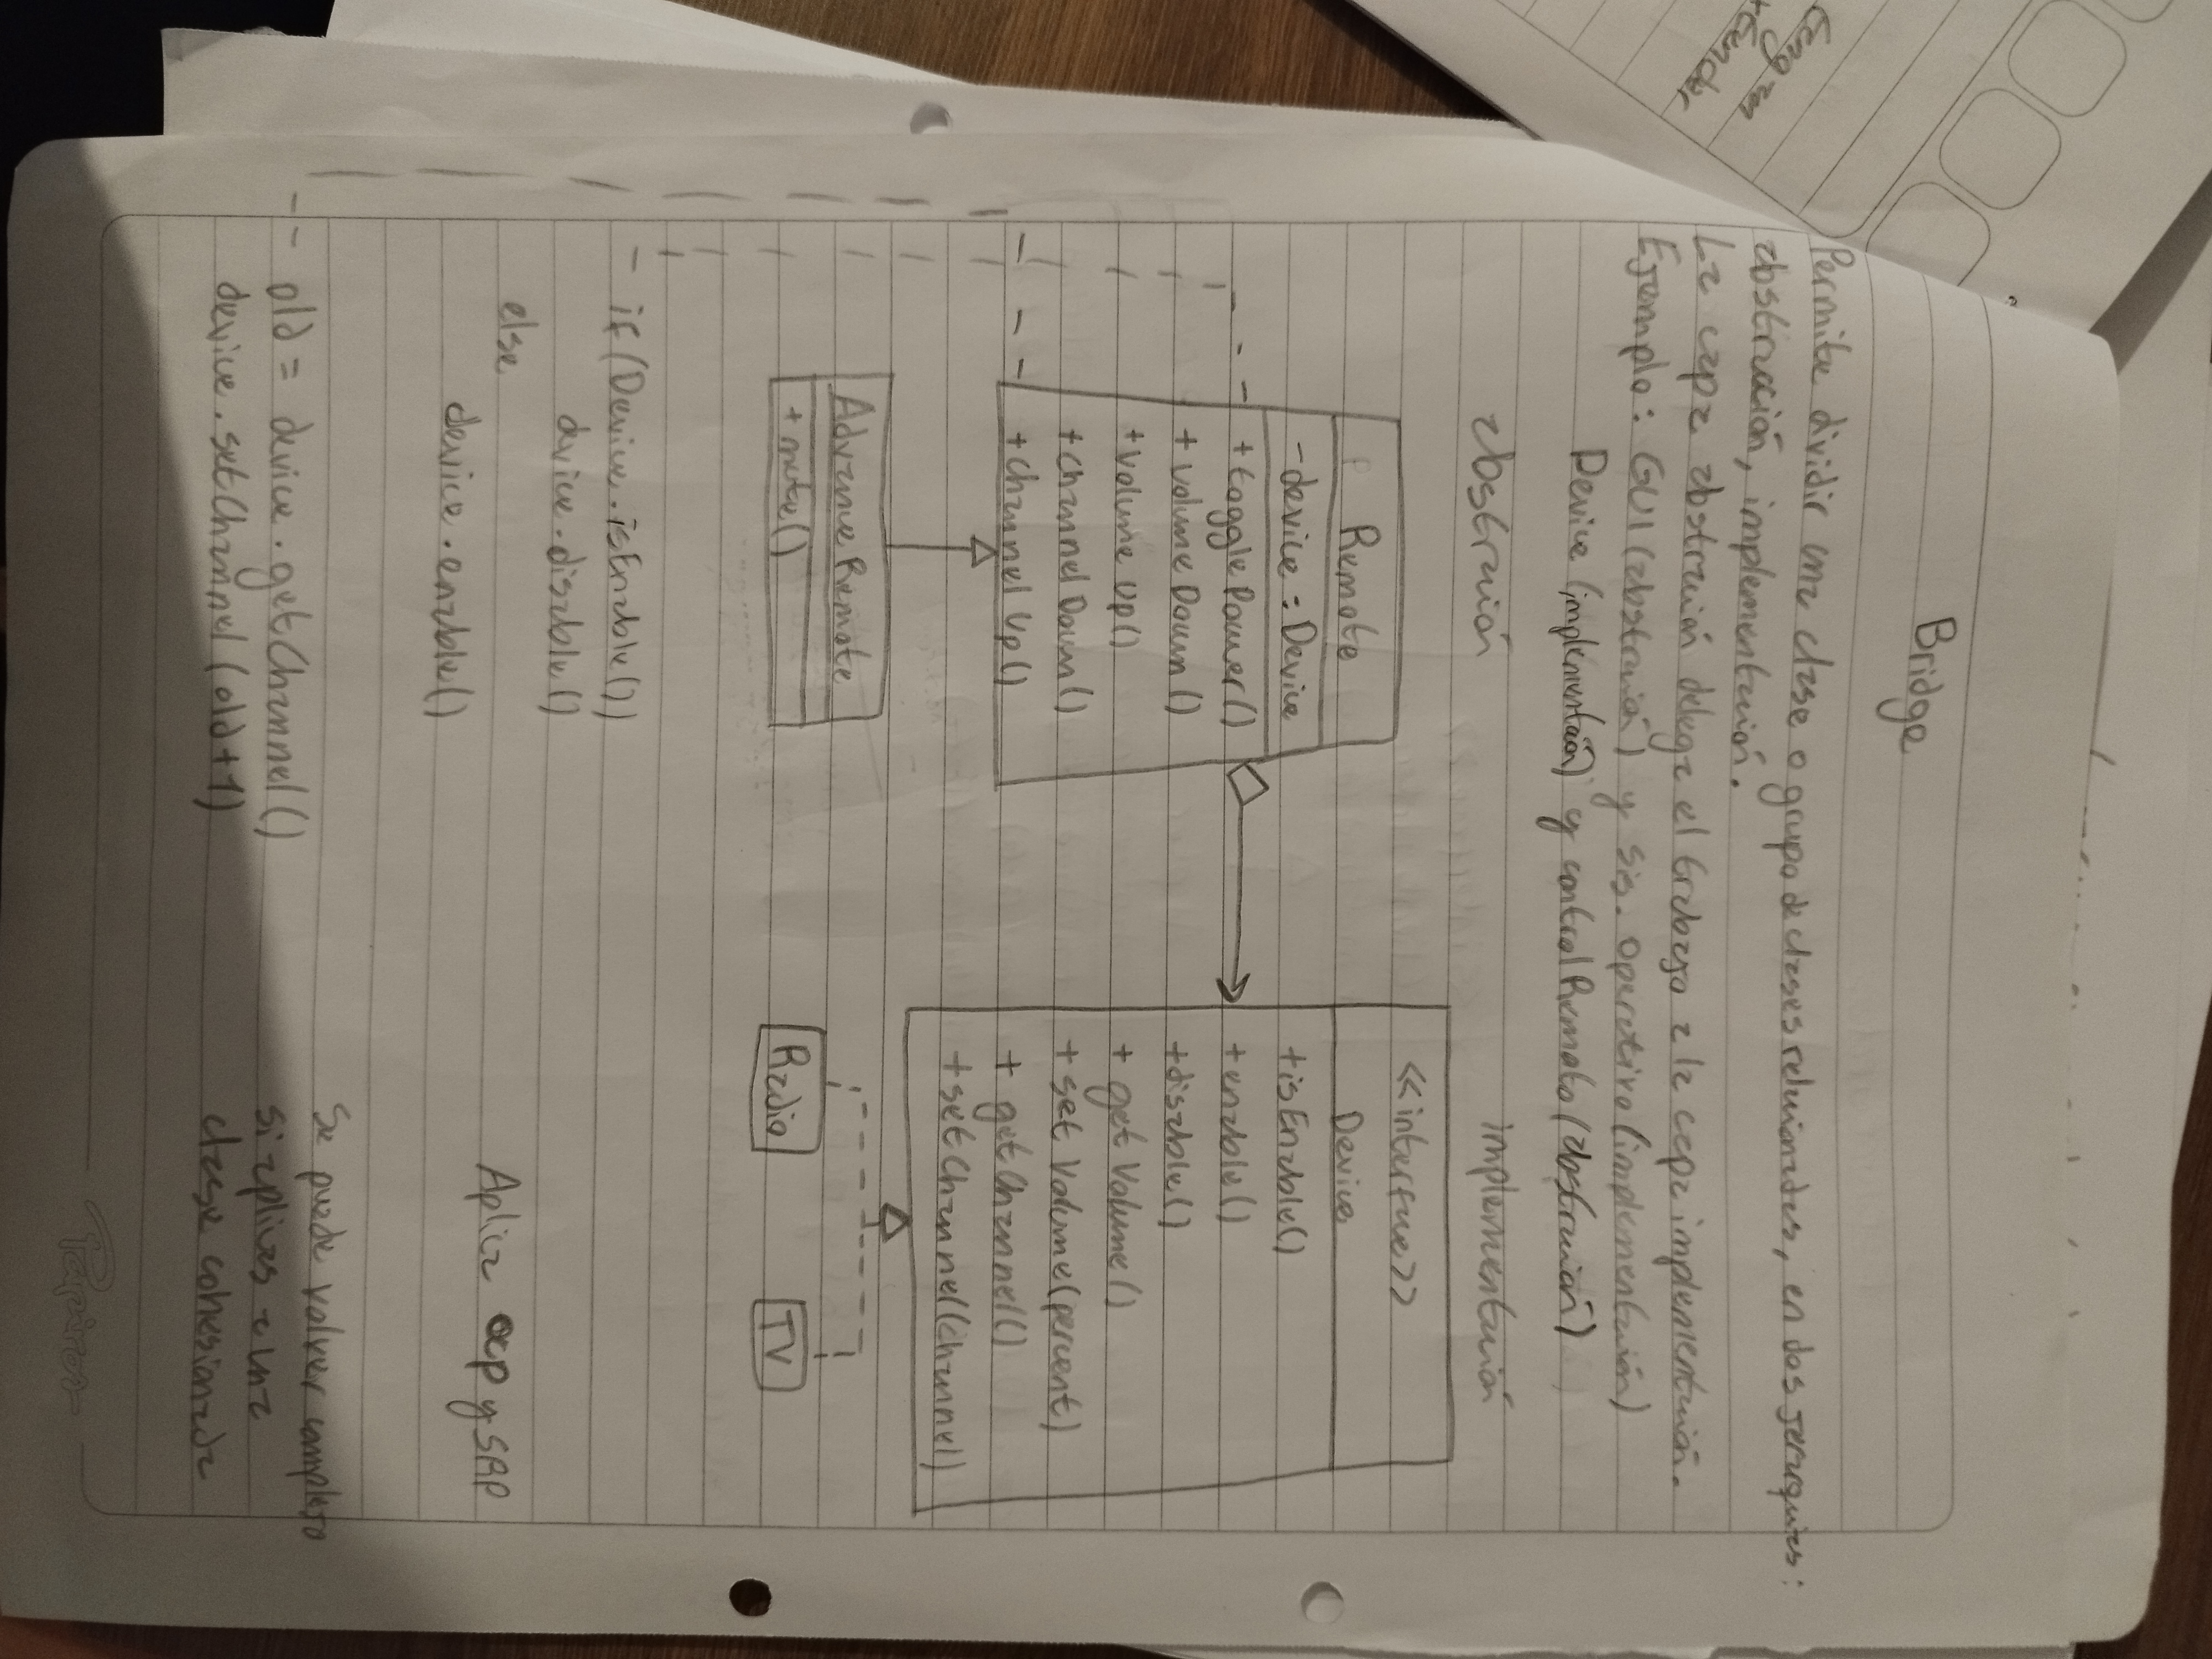 Bridge
Permite dividir una clase o grupo de clases relacionadas, en dos jerarquias:
abstracción, implementación.
La capa abstración delega el trabajo a la capa implementación.
Ejemplo: GUI (abstración) y sis. operativo (implementación)
Device (implementación) y control Remoto (abstración)
abstración
implementación
Remote
- device: Device
+ togglePower()
+ volumeDown()
+ volumeUp()
+ channelDown()
+ channelUp()
<<interface>>
Device
+ isEnable()
+ enable()
+ disable()
+ getVolume()
+ setVolume(percent)
+ getChannel()
+ setChannel(channel)
AdvanceRemote
+ mute()
Radio
TV
- if (Device.isEnable())
device.disable()
else
device.enable()
Aplica ocp y SRP
-- old = device.getChannel()
device.setChannel(old+1)
Se puede volver complejo
si aplicas a una
clase cohesionada
Papiros